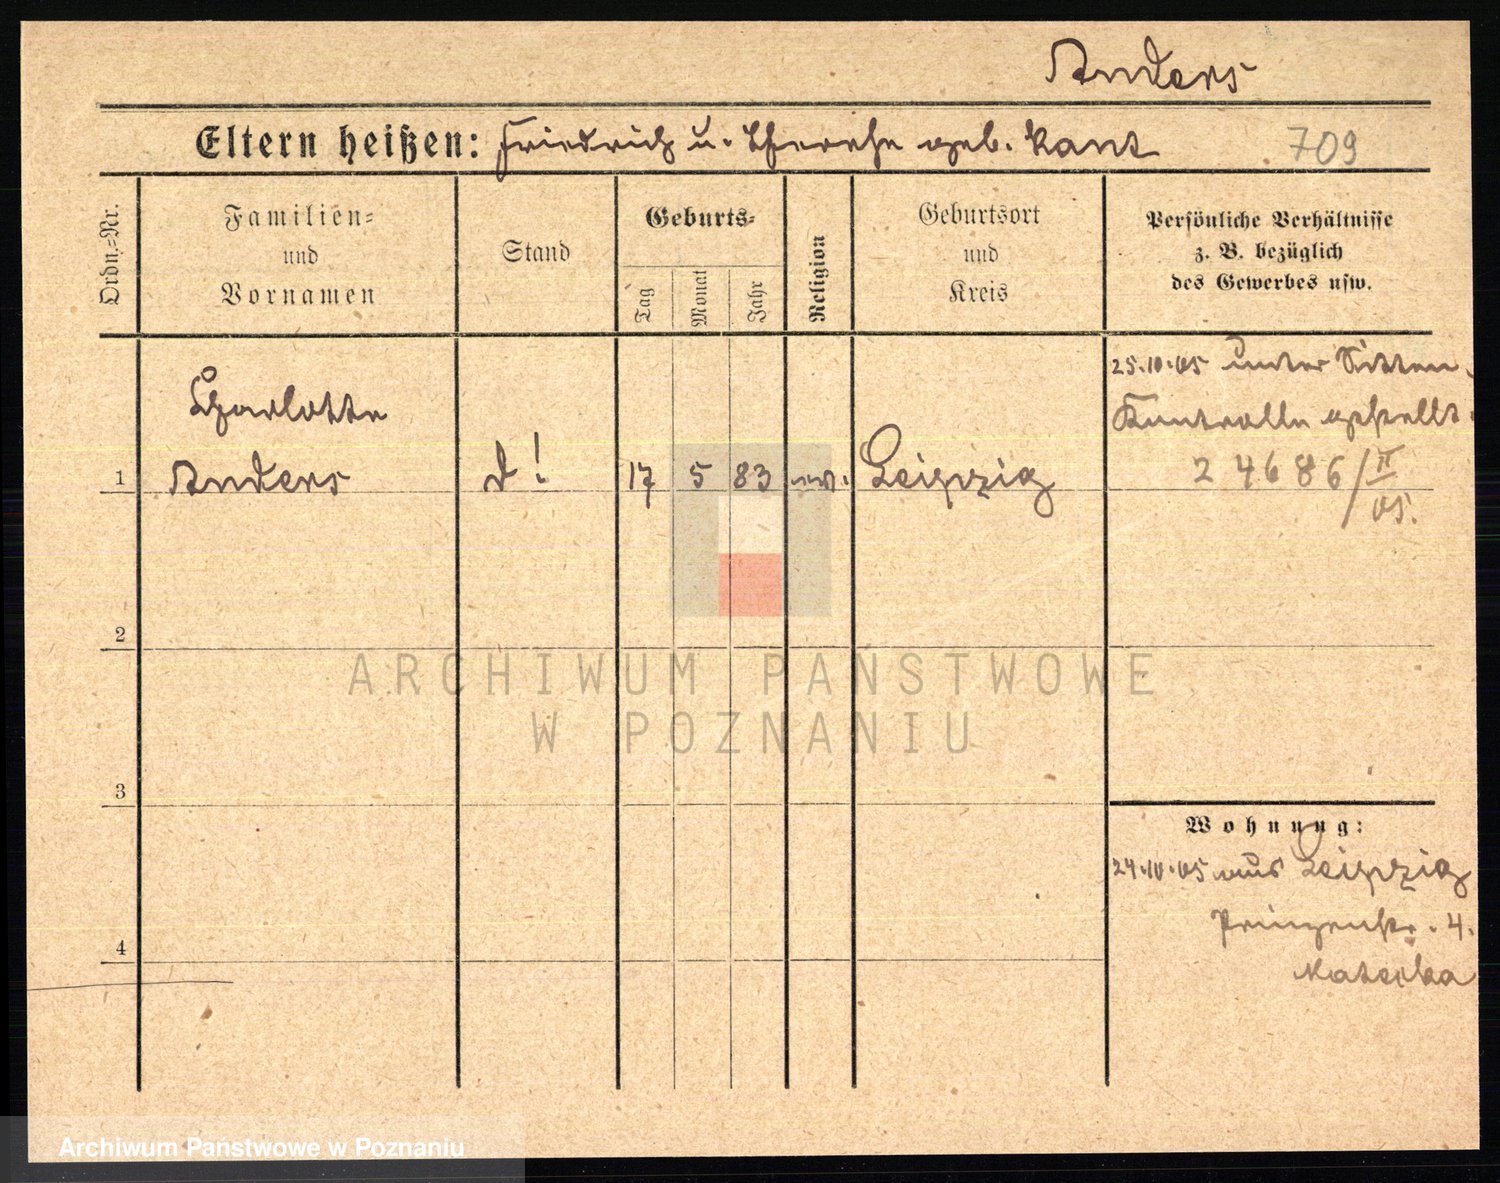 Anders
Eltern heißen: Friedrich u. Therese geb. Kant 709
Ordn.-Nr.
Familien-
und
Vornamen
Stand
Geburts-
Tag
Monat
Jahr
Religion
Geburtsort
und
Kreis
Persönliche Verhältnisse
z. B. bezüglich
des Gewerbes usw.
25.10.05 unter Sitten-
Kontrolle gestellt.
24686/II
05.
Charlotte
1 Anders d! 17 5 83 ev. Leipzig
2
3
4
Wohnung:
24.10.05 aus Leipzig
Prinzenstr. 4.
Matecka
ARCHIWUM PAŃSTWOWE
W POZNANIU
Archiwum Państwowe w Poznaniu